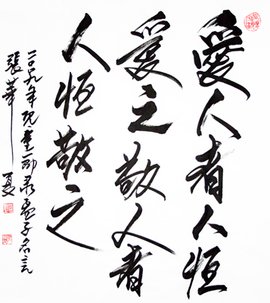 愛人者人恒
愛之敬人者
人恒敬之
二〇一九年
孟子名言
張華